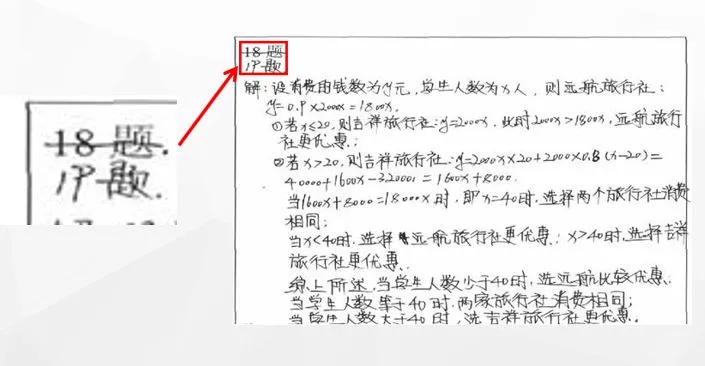 18题.
19题.
18题
19题.
解:设消费的钱数为y元,学生人数为x人,则远航旅行社:
y=0.9×2000x=1800x.
①若x≤20,则吉祥旅行社:y=2000x,此时2000x>1800x,远航旅行
社更优惠;
②若x>20,则吉祥旅行社:y=2000x×20+2000×0.8(x-20)=
40000+1600x-32000=1600x+8000.
当1600x+8000=1800x时,即x=40时,选择两个旅行社消费
相同;
当x<40时,选择远航旅行社更优惠;x>40时,选择吉祥
旅行社更优惠.
综上所述,当学生人数少于40时,选远航比较优惠;
当学生人数等于40时,两家旅行社消费相同;
当学生人数大于40时,选吉祥旅行社更优惠.